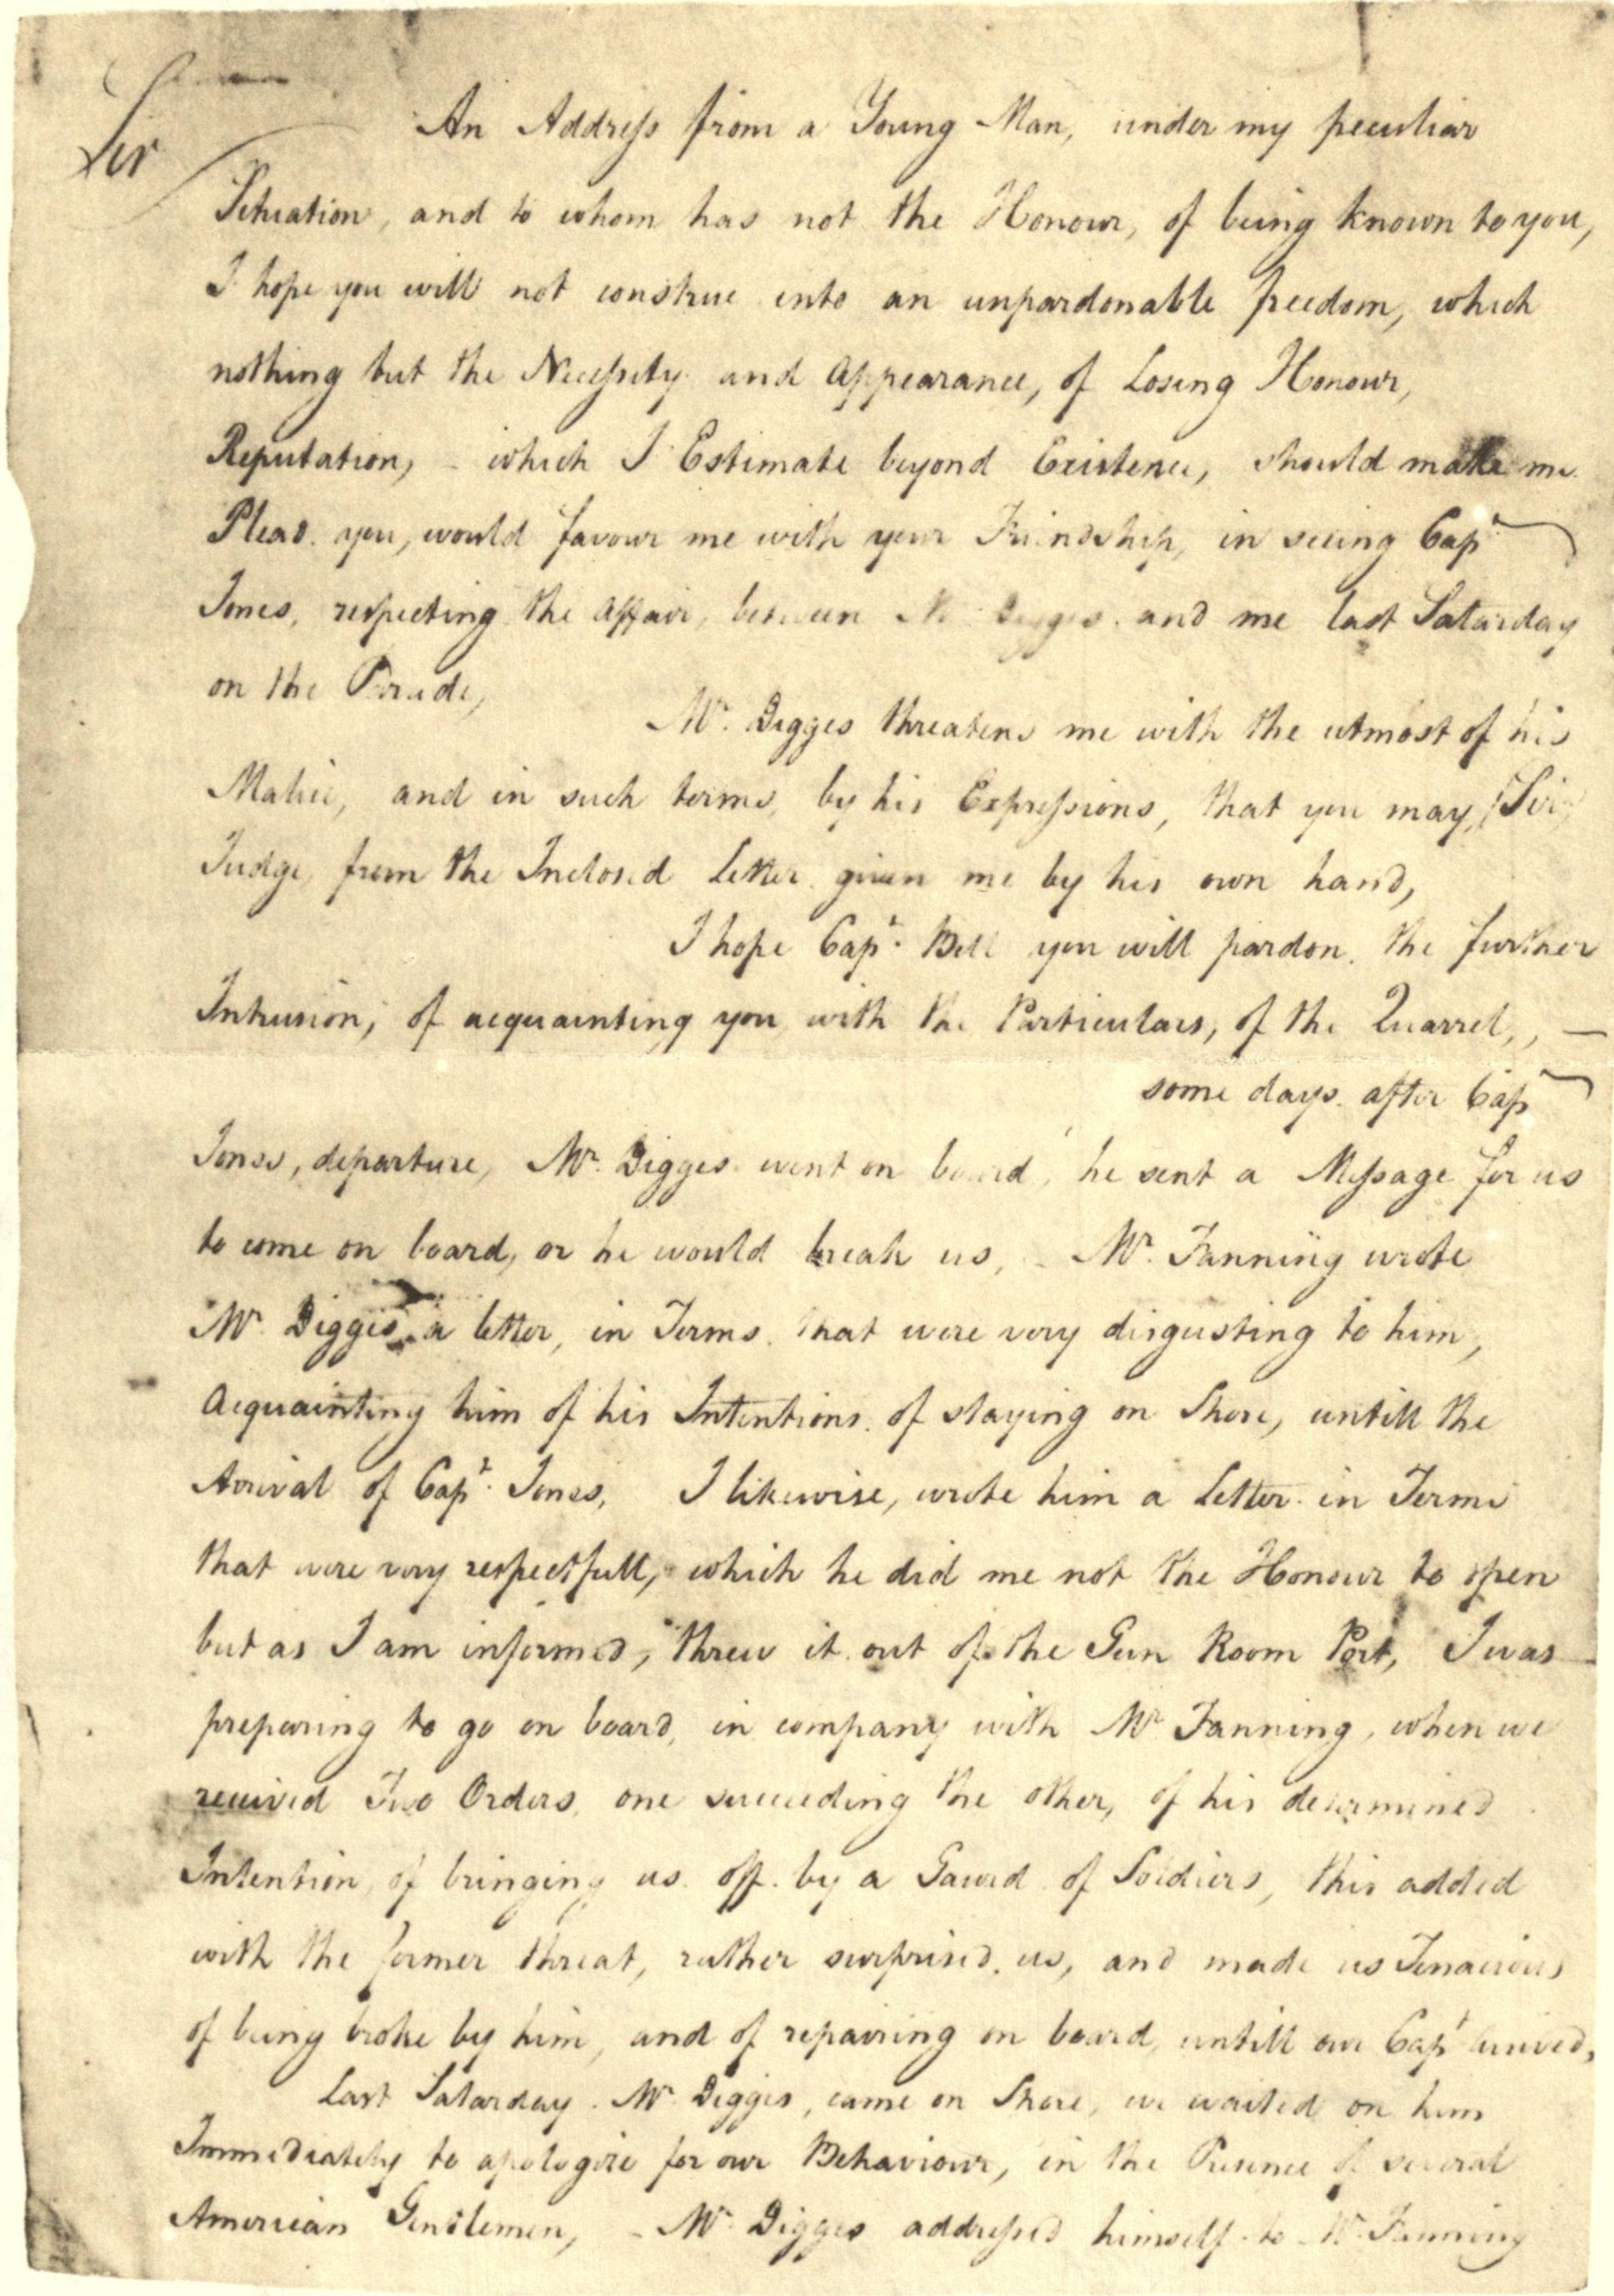 Sir
An Address from a Young Man, under my peculiar
Situation, and to whom has not the Honour, of being known to you,
I hope you will not construe into an unpardonable freedom, which
nothing but the Necessity and Appearance, of Losing Honour,
Reputation, - which I Estimate beyond Existence, should make me
Plead you, would favour me with your Friendship, in seeing Capt
Jones, respecting the Affair, between Mr Digges and me last Satarday
on the Parade,
Mr. Digges threatens me with the utmost of his
Malice, and in such terms, by his Expressions, that you may, (Sir)
Judge, from the Inclosed Letter given me by his own hand,
I hope Capt. Bell you will pardon the further
Intrusion, of acquainting you with the Particulars, of the Quarrel, -
some days after Capt
Jones, departure, Mr. Digges went on board, he sent a Message for us
to come on board, or he would break us, - Mr. Fanning wrote
Mr. Digges a letter, in Terms that were very disgusting to him,
Acquainting him of his Intentions of staying on Shore, untill the
Arrival of Capt. Jones, I likewise, wrote him a Letter in Terms
that were very respectfull, which he did me not the Honour to open
but as I am informed, threw it out of the Gun Room Port, I was
preparing to go on board, in company with Mr Fanning, when we
received Two Orders, one succeeding the other, of his determined
Intention, of bringing us off by a Gaurd of Soldiers, this added
with the former threat, rather surprised us, and made us Tenacious
of being broke by him, and of repairing on board, untill our Capt arived,
Last Satarday Mr Digges, came on Shore, we waited on him
Immediately to apologize for our Behaviour, in the Presence of several
American Gentlemen, - Mr. Digges addressed himself to Mr. Fanning